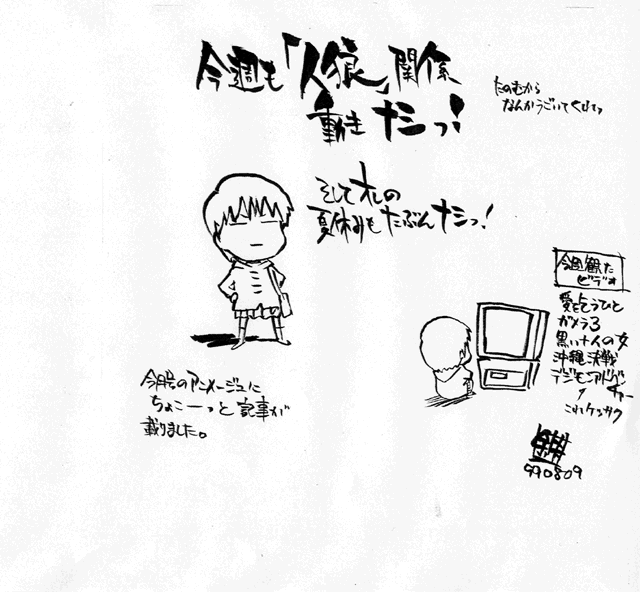 今週も「人狼」関係
動き ナシっ!
たのむから
なんかうごいてくれてっ
そしてオレの
夏休みもたぶんナシっ!
今週観た
ビデオ
愛を乞うひと
ガメラ3
黒い十人の女
沖縄決戦
デジモンアドベンチャー
これケッサク
今月号のアニメージュに
ちょこーっと記事が
載りました。
990809